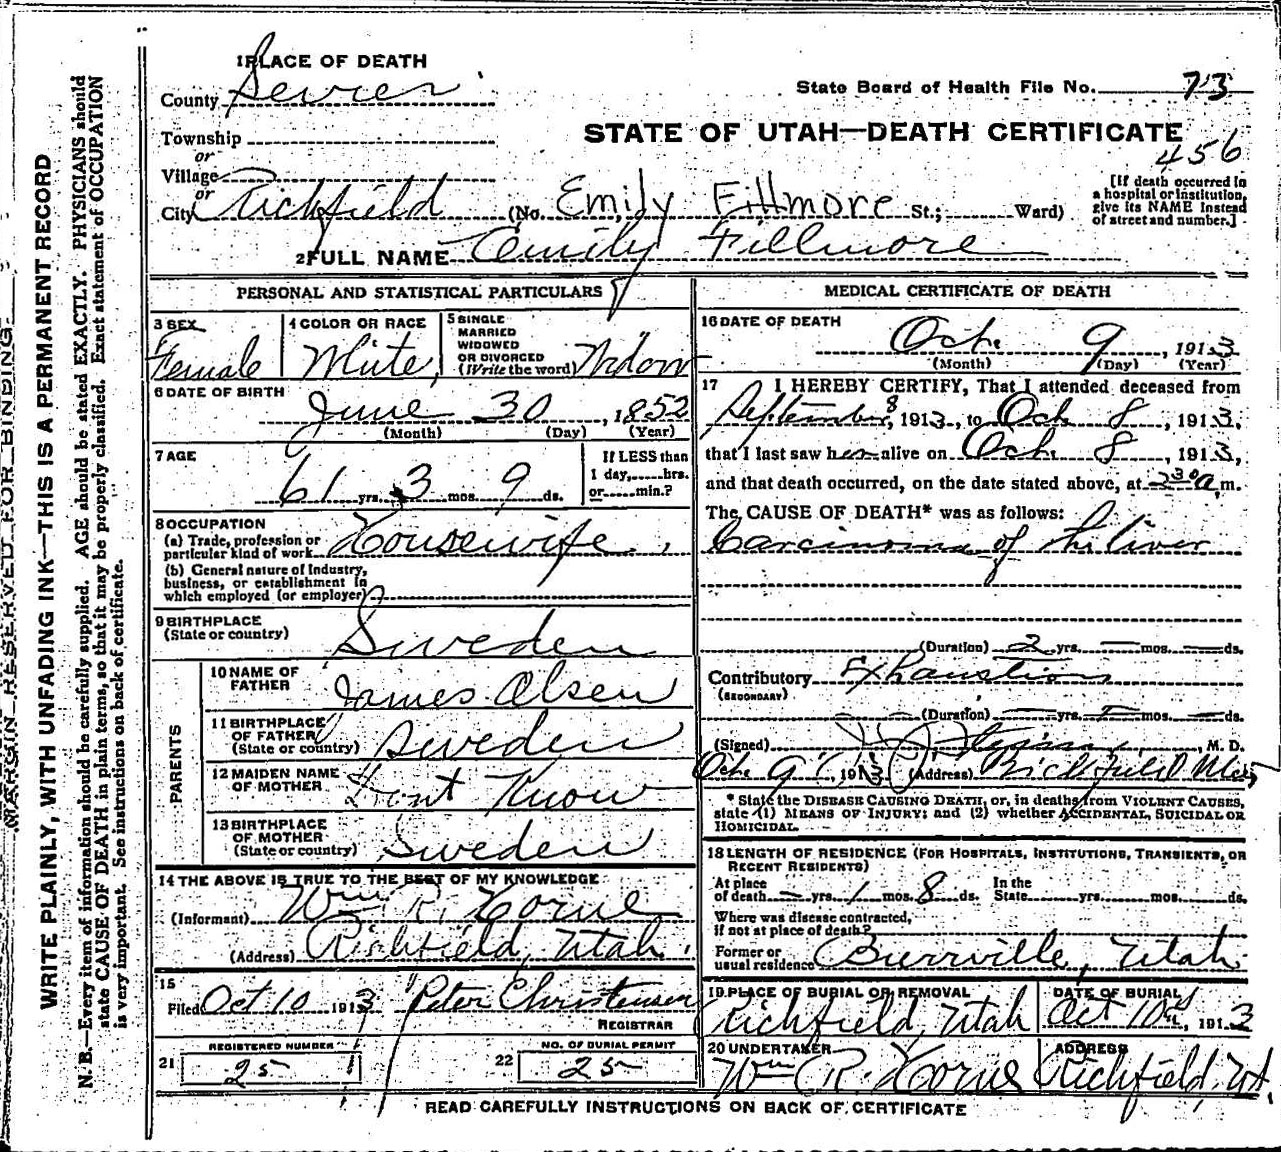 MARGIN RESERVED FOR BINDING
WRITE PLAINLY, WITH UNFADING INK—THIS IS A PERMANENT RECORD
N. B.—Every item of information should be carefully supplied. AGE should be stated EXACTLY. PHYSICIANS should
state CAUSE OF DEATH in plain terms, so that it may be properly classified. Exact statement of OCCUPATION
is very important. See instructions on back of certificate.
1 PLACE OF DEATH
County Sevier
Township
or
Village
or
City Richfield
State Board of Health File No. 73
STATE OF UTAH—DEATH CERTIFICATE
456
(No. Emily Fillmore St.; Ward)
[If death occurred in
a hospital or institution,
give its NAME instead
of street and number.]
2 FULL NAME Emily Fillmore
PERSONAL AND STATISTICAL PARTICULARS
3 SEX
Female
4 COLOR OR RACE
White
5 SINGLE
MARRIED
WIDOWED
OR DIVORCED
(Write the word) Widow
6 DATE OF BIRTH
June 30, 1852
(Month) (Day) (Year)
7 AGE
61 yrs. 3 mos. 9 ds.
If LESS than
1 day, hrs.
or min.?
8 OCCUPATION
(a) Trade, profession or
particular kind of work Housewife
(b) General nature of industry,
business, or establishment in
which employed (or employer)
9 BIRTHPLACE
(State or country) Sweden
PARENTS
10 NAME OF
FATHER James Olsen
11 BIRTHPLACE
OF FATHER
(State or country) Sweden
12 MAIDEN NAME
OF MOTHER Dont Know
13 BIRTHPLACE
OF MOTHER
(State or country) Sweden
14 THE ABOVE IS TRUE TO THE BEST OF MY KNOWLEDGE
(Informant) Wm R. Horne
(Address) Richfield, Utah.
15
Filed Oct 10 1913 Peter Christensen
REGISTRAR
21 REGISTERED NUMBER
25
22 NO. OF BURIAL PERMIT
25
MEDICAL CERTIFICATE OF DEATH
16 DATE OF DEATH
Oct. 9, 1913
(Month) (Day) (Year)
17 I HEREBY CERTIFY, That I attended deceased from
September 8, 1913, to Oct 8, 1913,
that I last saw her alive on Oct. 8, 1913,
and that death occurred, on the date stated above, at 2 30 a m.
The CAUSE OF DEATH* was as follows:
Carcinoma of the liver
(Duration) 2 yrs. — mos. — ds.
Contributory Exhaustion
(SECONDARY)
(Duration) — yrs. — mos. — ds.
(Signed) , M. D.
Oct. 9, 1913 (Address) Richfield
* State the DISEASE CAUSING DEATH, or, in deaths from VIOLENT CAUSES,
state (1) MEANS OF INJURY; and (2) whether ACCIDENTAL, SUICIDAL OR
HOMICIDAL.
18 LENGTH OF RESIDENCE (FOR HOSPITALS, INSTITUTIONS, TRANSIENTS, OR
RECENT RESIDENTS)
At place
of death — yrs. 1 mos. 8 ds. In the
State yrs. mos. ds.
Where was disease contracted,
if not at place of death?
Former or
usual residence Burrville, Utah
19 PLACE OF BURIAL OR REMOVAL
Richfield, Utah
DATE OF BURIAL
Oct 10, 1913
20 UNDERTAKER
Wm R. Horne
ADDRESS
Richfield, Ut.
READ CAREFULLY INSTRUCTIONS ON BACK OF CERTIFICATE